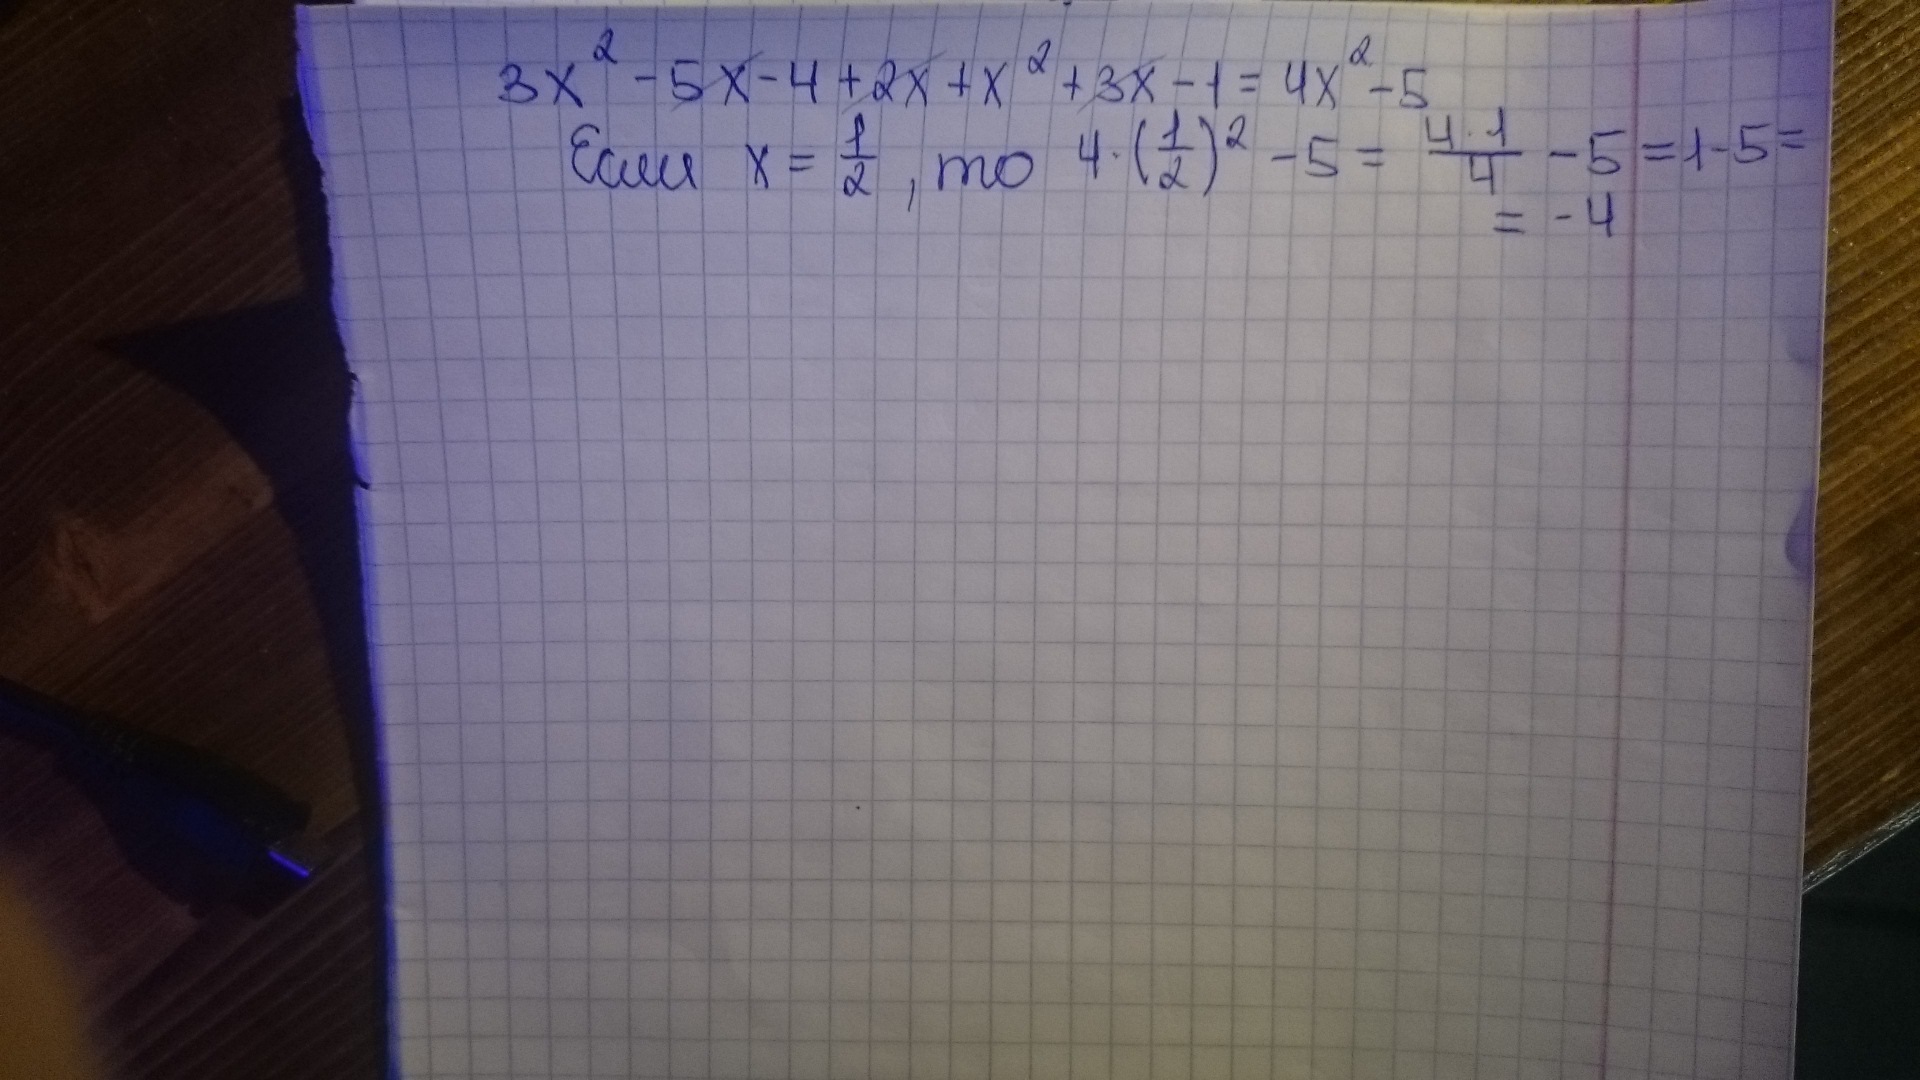 3x² - 5x - 4 + 2x + x² + 3x - 1 = 4x² - 5
Если x = 1/2, то 4·(1/2)² - 5 = 4·1/4 - 5 = 1 - 5 =
= -4